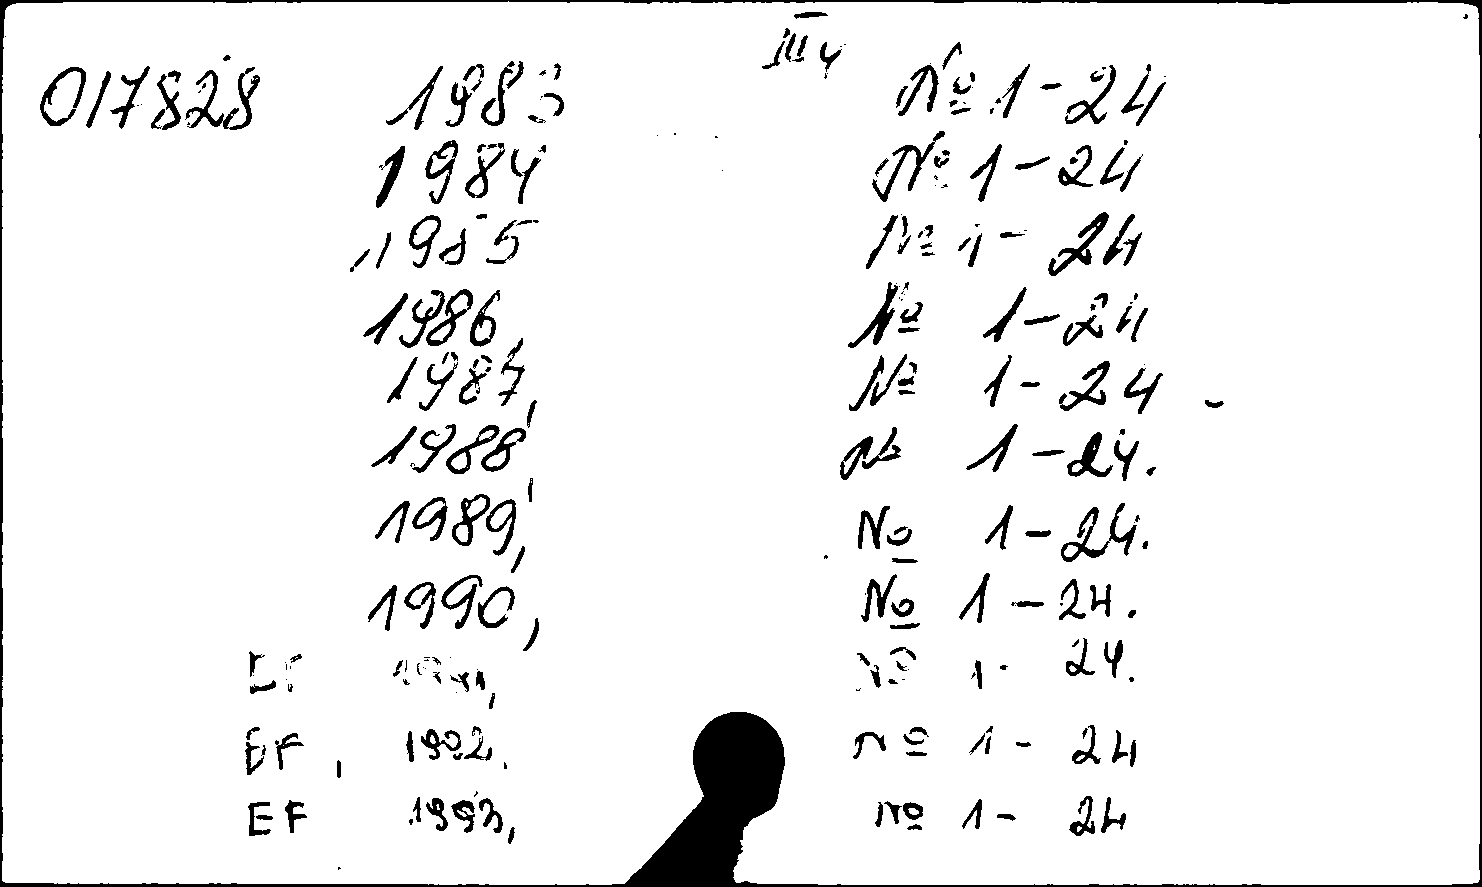 III ч
017828 1983 № 1-24
1984 № 1-24
1985 № 1-24
1986, № 1-24
1987, № 1-24
1988, № 1-24.
1989, № 1-24.
1990, № 1-24.
EF 1991, № 1- 24.
EF, 1992. № 1- 24
EF 1993, № 1- 24